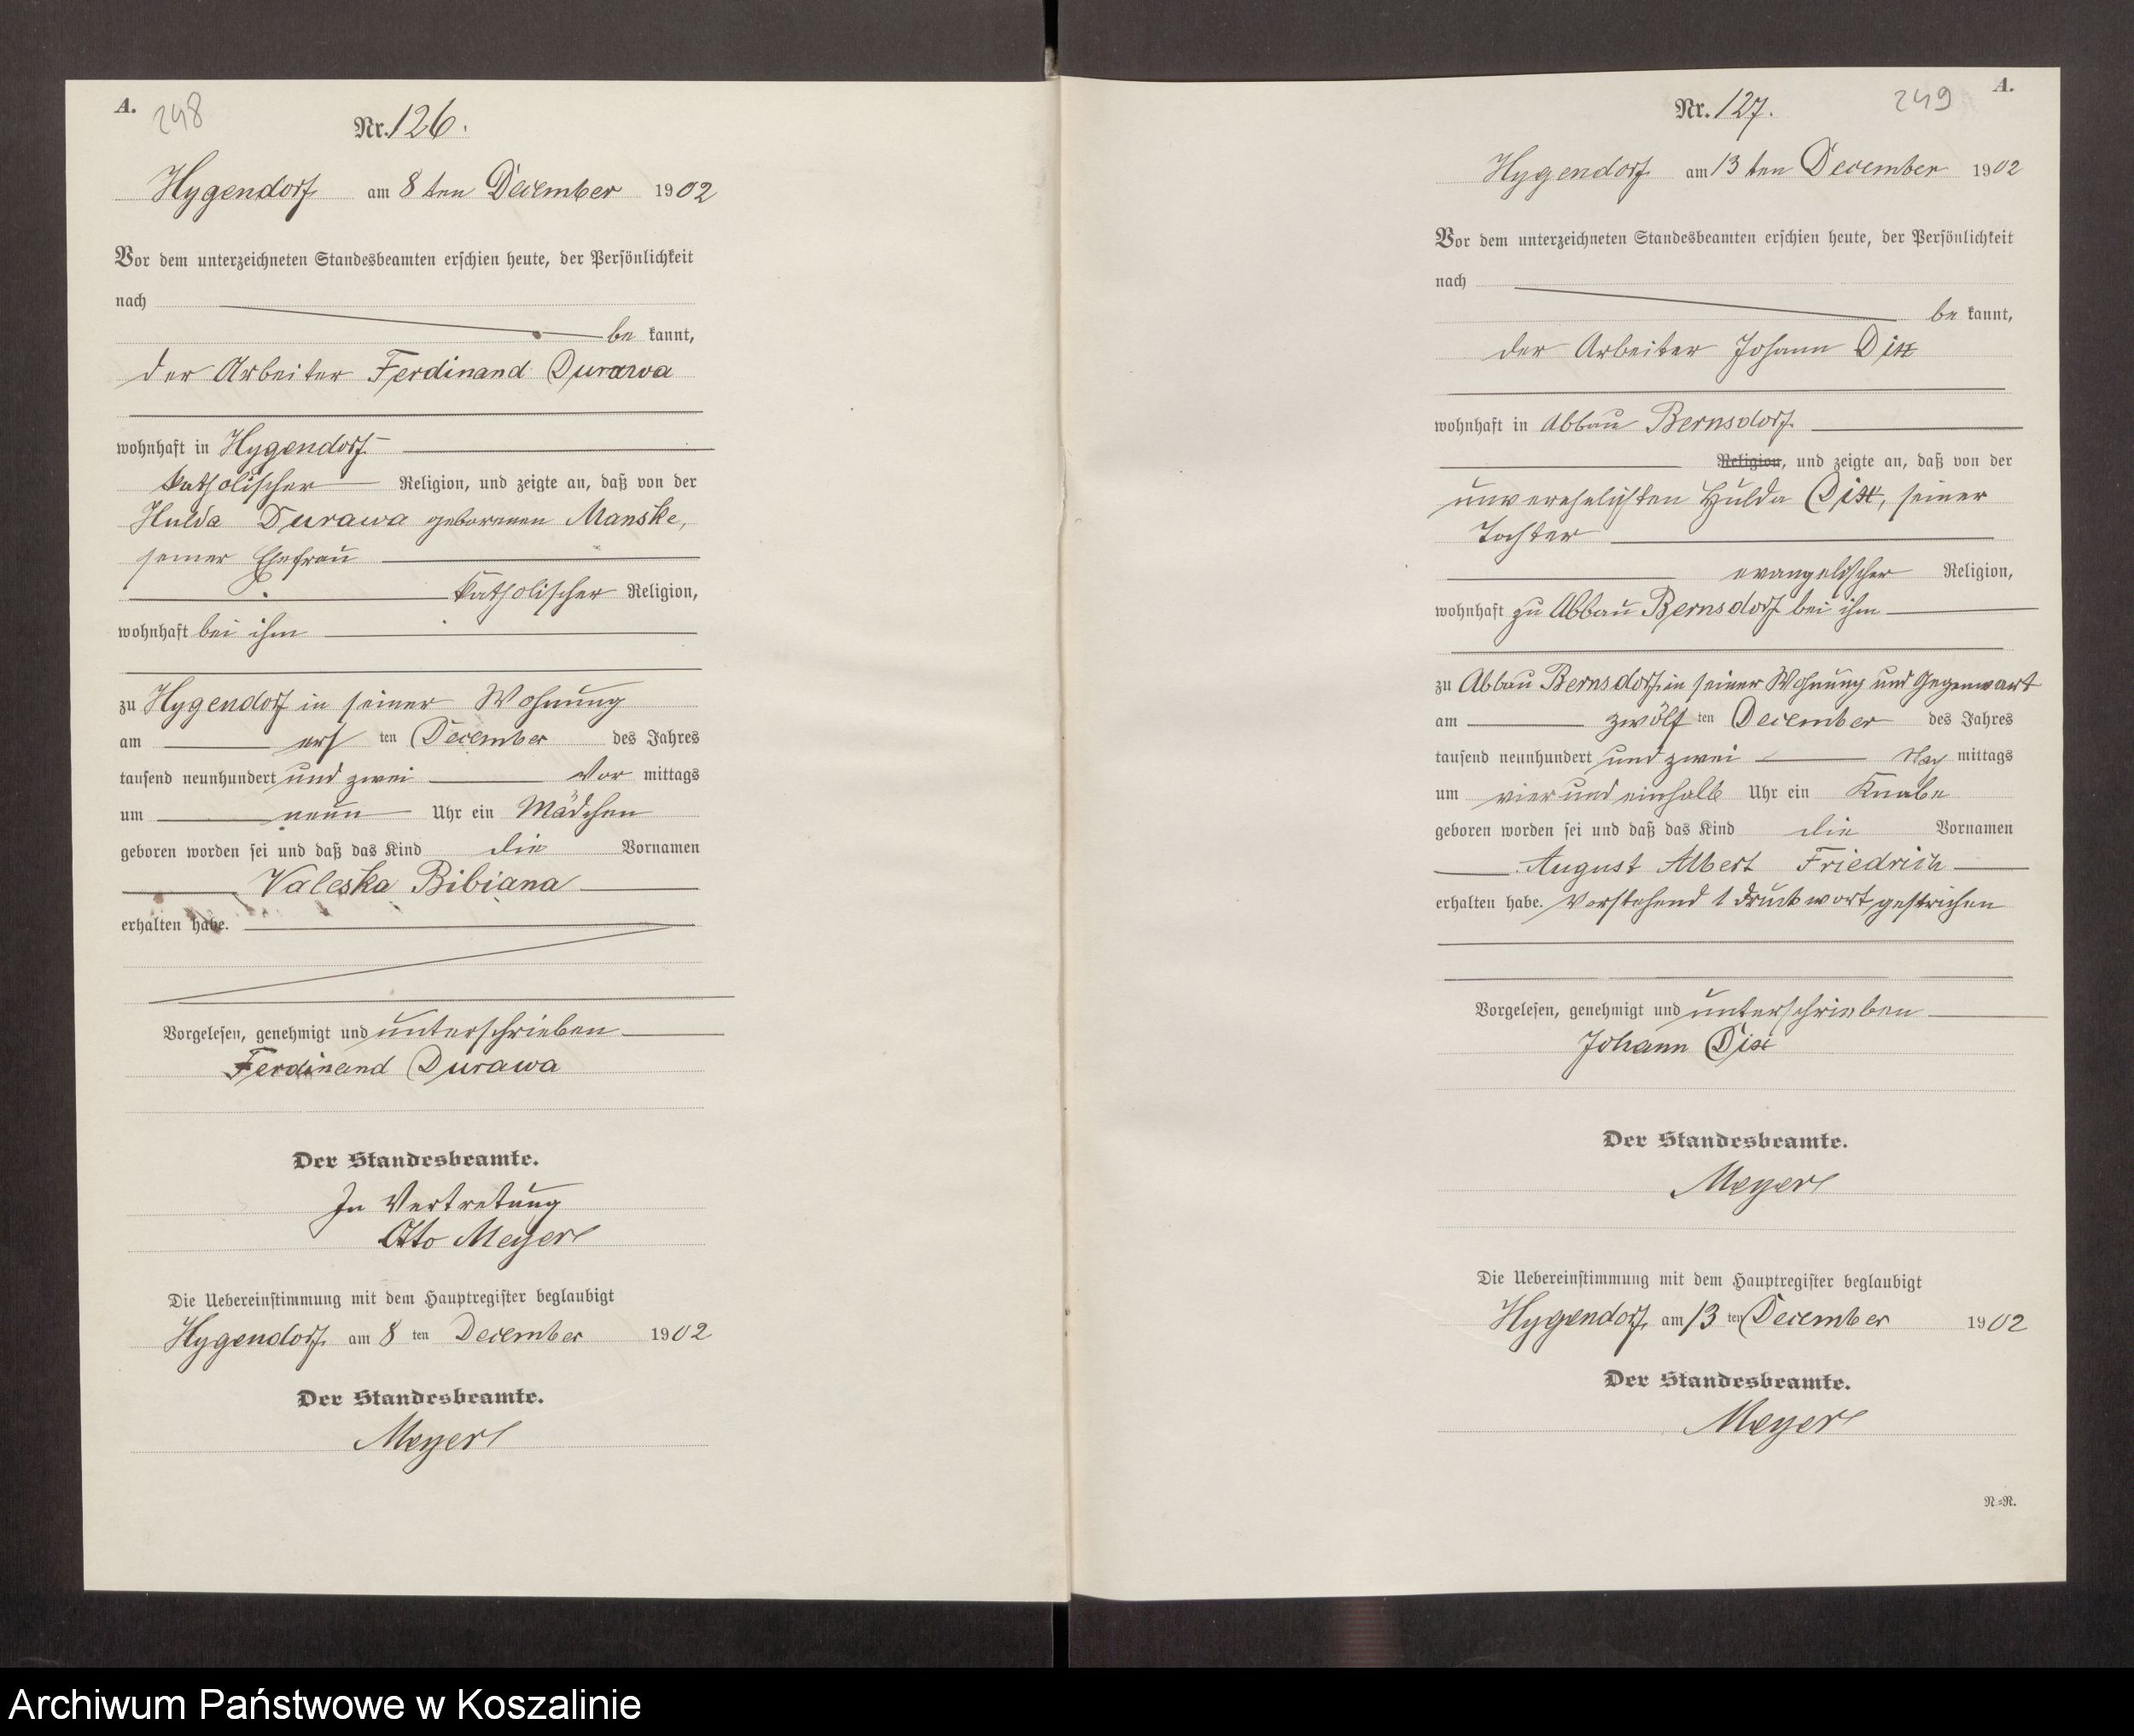 A.
248
Nr. 126.
Hygendorf am 8ten December 1902
Vor dem unterzeichneten Standesbeamten erschien heute, der Persönlichkeit
nach
bekannt,
der Arbeiter Ferdinand Durawa
wohnhaft in Hygendorf
katholischer Religion, und zeigte an, daß von der
Hulda Durawa geborenen Manske,
seiner Ehefrau
katholischer Religion,
wohnhaft bei ihm
zu Hygendorf in seiner Wohnung
am ten December des Jahres
tausend neunhundert und zwei Vor mittags
um neun Uhr ein Mädchen
geboren worden sei und daß das Kind die Vornamen
Valeska Bibiana
erhalten habe.
Vorgelesen, genehmigt und unterschrieben
Ferdinand Durawa
Der Standesbeamte.
In Vertretung
Otto Meyer
Die Uebereinstimmung mit dem Hauptregister beglaubigt
Hygendorf am 8 ten December 1902
Der Standesbeamte.
Meyer
249
A.
Nr. 127.
Hygendorf am 13ten December 1902
Vor dem unterzeichneten Standesbeamten erschien heute, der Persönlichkeit
nach
bekannt,
der Arbeiter Johann Dix
wohnhaft in Abbau Bernsdorf
Religion, und zeigte an, daß von der
unverehelichten Hulda Dix, seiner
Tochter
evangelischer Religion,
wohnhaft zu Abbau Bernsdorf bei ihm
zu Abbau Bernsdorf in seiner Wohnung und Gegenwart
am zwölf ten December des Jahres
tausend neunhundert und zwei Nach mittags
um vier und einhalb Uhr ein Knabe
geboren worden sei und daß das Kind die Vornamen
August Albert Friedrich
erhalten habe. Vorstehend 1 Druckwort gestrichen
Vorgelesen, genehmigt und unterschrieben
Johann Dix
Der Standesbeamte.
Meyer
Die Uebereinstimmung mit dem Hauptregister beglaubigt
Hygendorf am 13 ten December 1902
Der Standesbeamte.
Meyer
N.=N.
Archiwum Państwowe w Koszalinie